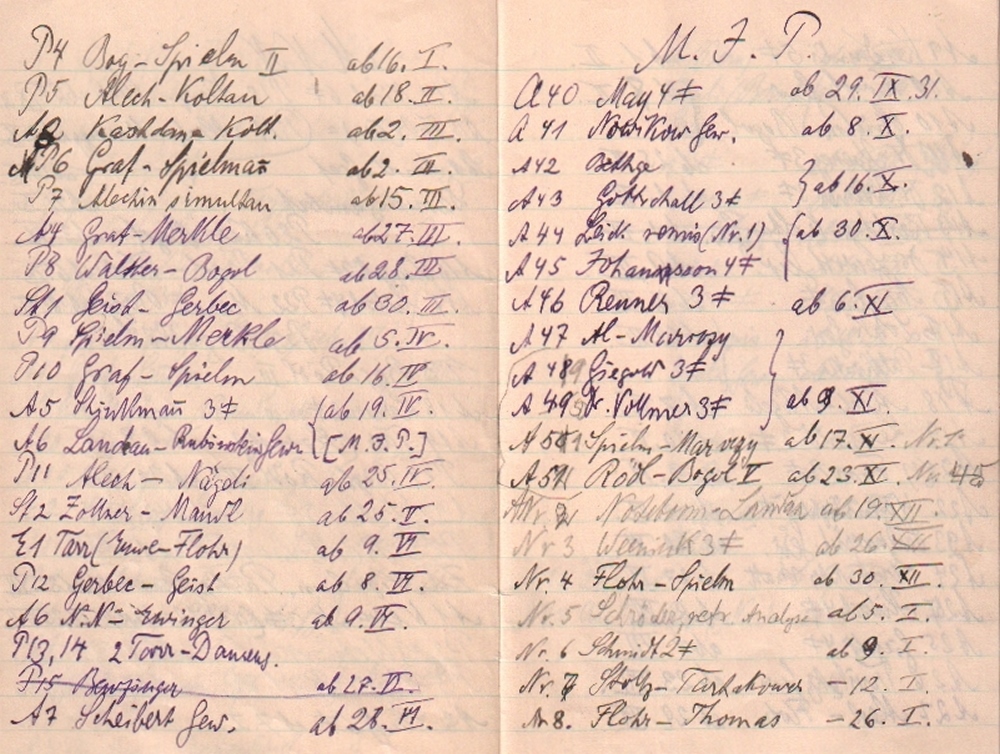 P4 Bog-Spielm II ab 16. I.
P5 Alech-Koltan ab 18. II.
A2 Kashdan-Kolt. ab 2. III.
P6 Graf-Spielman ab 2. III.
P7 Alechin simultan ab 15. III.
A4 Graf-Merkle ab 27. III
P8 Walter-Bogol ab 28. III
St1 Geist-Gerbec ab 30. III
P9 Spielm-Merkle ab 5. IV
P10 Graf-Spielm ab 16. IV
A5 3‡ ab 19. IV.
A6 Landau-Rubinstein Gew. [M.J.P.]
P11 Alech-Nägeli ab 25. IV.
St2 Zollner-Mandl ab 25. V.
E1 Tarr (Euwe-Flohr) ab 9. VI
P12 Gerbec-Geist ab 8. VI
A6 N.N-Ewinger ab 9. VI.
P13,14 2 Torr-Damens.
P15 ab 27. VI.
A7 Scheibert Gew. ab 28. VI.
M. J. P.
A40 May 4‡ ab 29. IX. 31.
A 41 Nowikow Gew. ab 8. X.
A42 Bethge
A43 Gottschall 3‡ } ab 16. X.
A44 Leick remis (Nr. 1) { ab 30. X.
A45 Johansson 4‡
A46 Renner 3‡ ab 6. XI
A47 Al-Marozy
A 48 Giegold 3‡
A 49 Dr. Vollmer 3‡ ab 9. XI.
A 51 Spielm-Maroczy ab 17. XI Nr. 1
A 51 Rödl-Bogol I ab 23. XI Nr. 4/5
Nr. 2 Noteboom-Landau ab 19. XII
Nr 3 Weenink 3‡ ab 26. XII
Nr. 4 Flohr-Spielm ab 30. XII.
Nr. 5 Schröder, retr. Analyse ab 5. I.
Nr. 6 Schmidt 2‡ ab 9. I.
Nr. 7 Stoltz-Tartakower -12. I.
Nr 8. Flohr-Thomas -26. I.